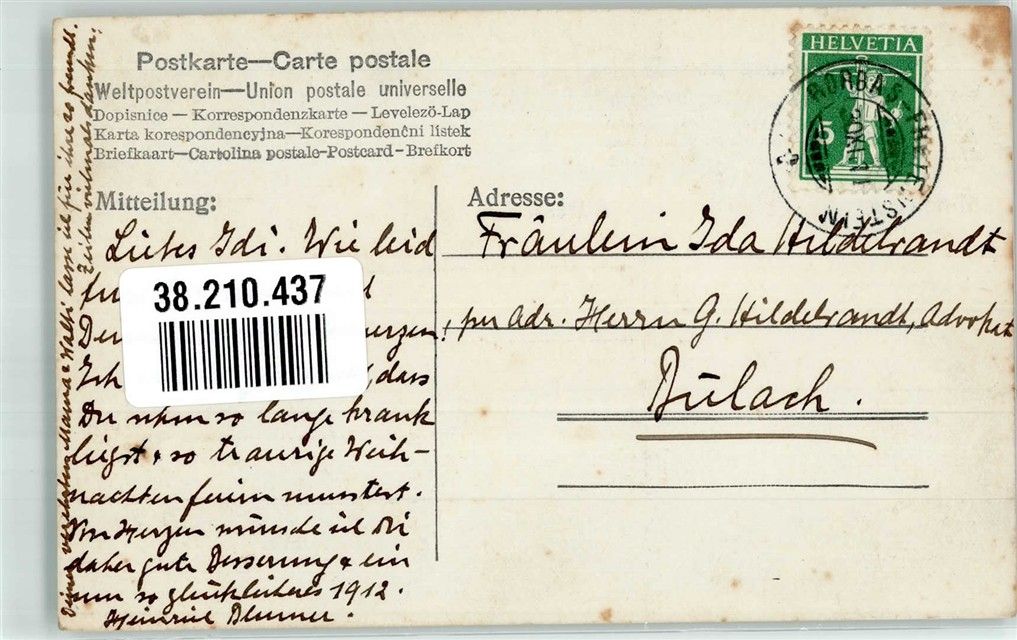 Postkarte—Carte postale
Weltpostverein—Union postale universelle
Dopisnice — Korrespondenzkarte — Levelezö-Lap
Karta korespondencyjna—Korespondenční listek
Briefkaart—Cartolina postale-Postcard-Brefkort
HELVETIA
5
RORBAS FREIENSTEIN
Mitteilung:
Liebes Idi. Wie leid
38.210.437
Ich dass
Du nun so lange krank
liegst & so traurige Weih-
nachten feiern musstest.
Von Herzen wünsche ich Dir
daher gute Besserung & ein
um so glücklicheres 1912.
Heinrich Blumer.
Deiner verehrten Mama & Walti lass ich für ihre so freundl.
Zeilen vielmals danken.
Adresse:
Fräulein Ida Hildebrandt
per Adr. Herrn G. Hildebrandt, Advokat
Bülach.